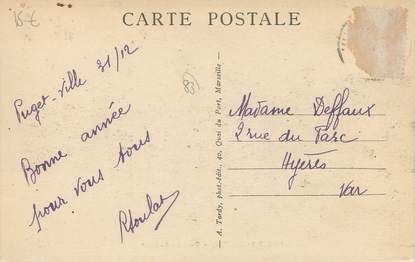 15-€
CARTE POSTALE
Puget-Ville 31/12
Bonne année
pour vous tous
A. Tardy, phot.-édit., 40, Quai du Port, Marseille.
Madame Deffaux
2 rue du Parc
Hyères
Var